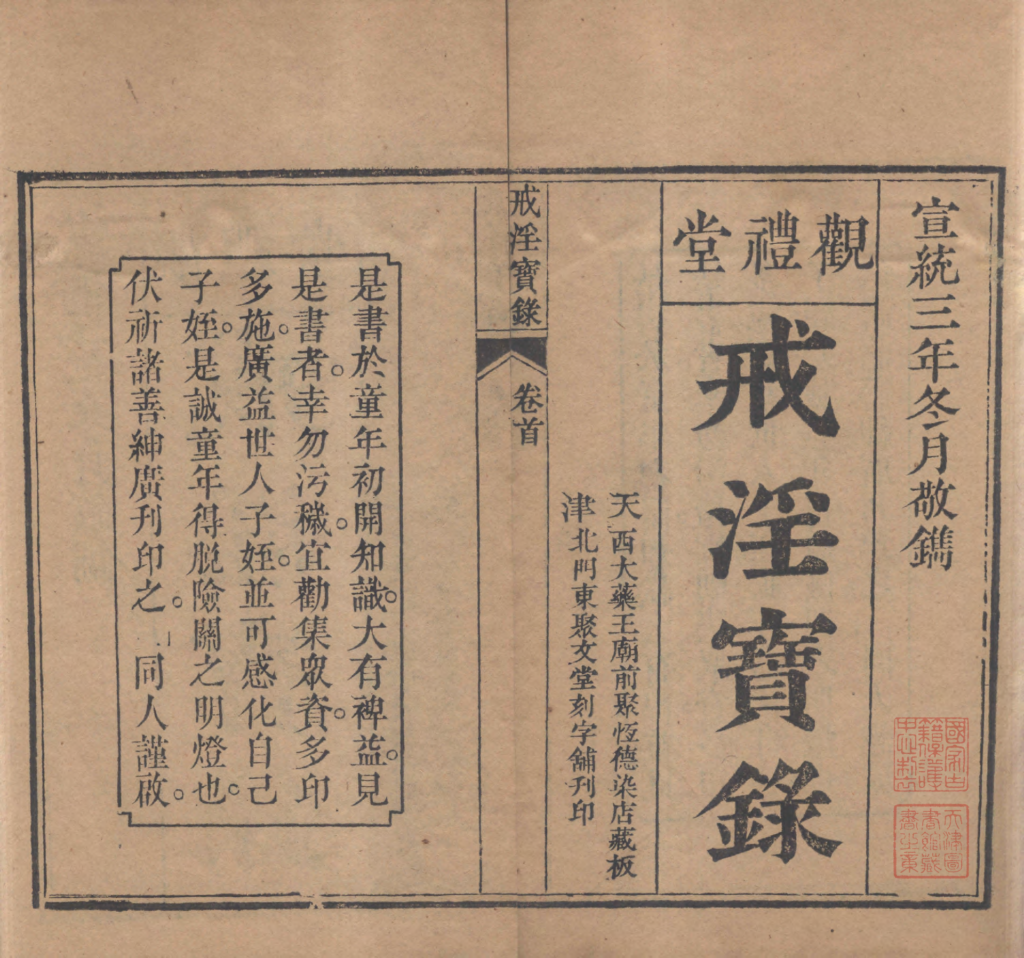 宣統三年冬月敬鐫
觀禮堂
戒淫寶錄
天津
西大藥王廟前聚恆德染店藏板
北門東聚文堂刻字舖刊印
戒淫寶錄
卷首
是書於童年初開知識。大有裨益。見
是書者。幸勿污穢。宜勸集眾資。多印
多施。廣益世人子姪。並可感化自己
子姪。是誠童年得脫險關之明燈也。
伏祈諸善紳廣刊印之。 同人謹啟。
國家古籍保護
天津圖書館藏書之章